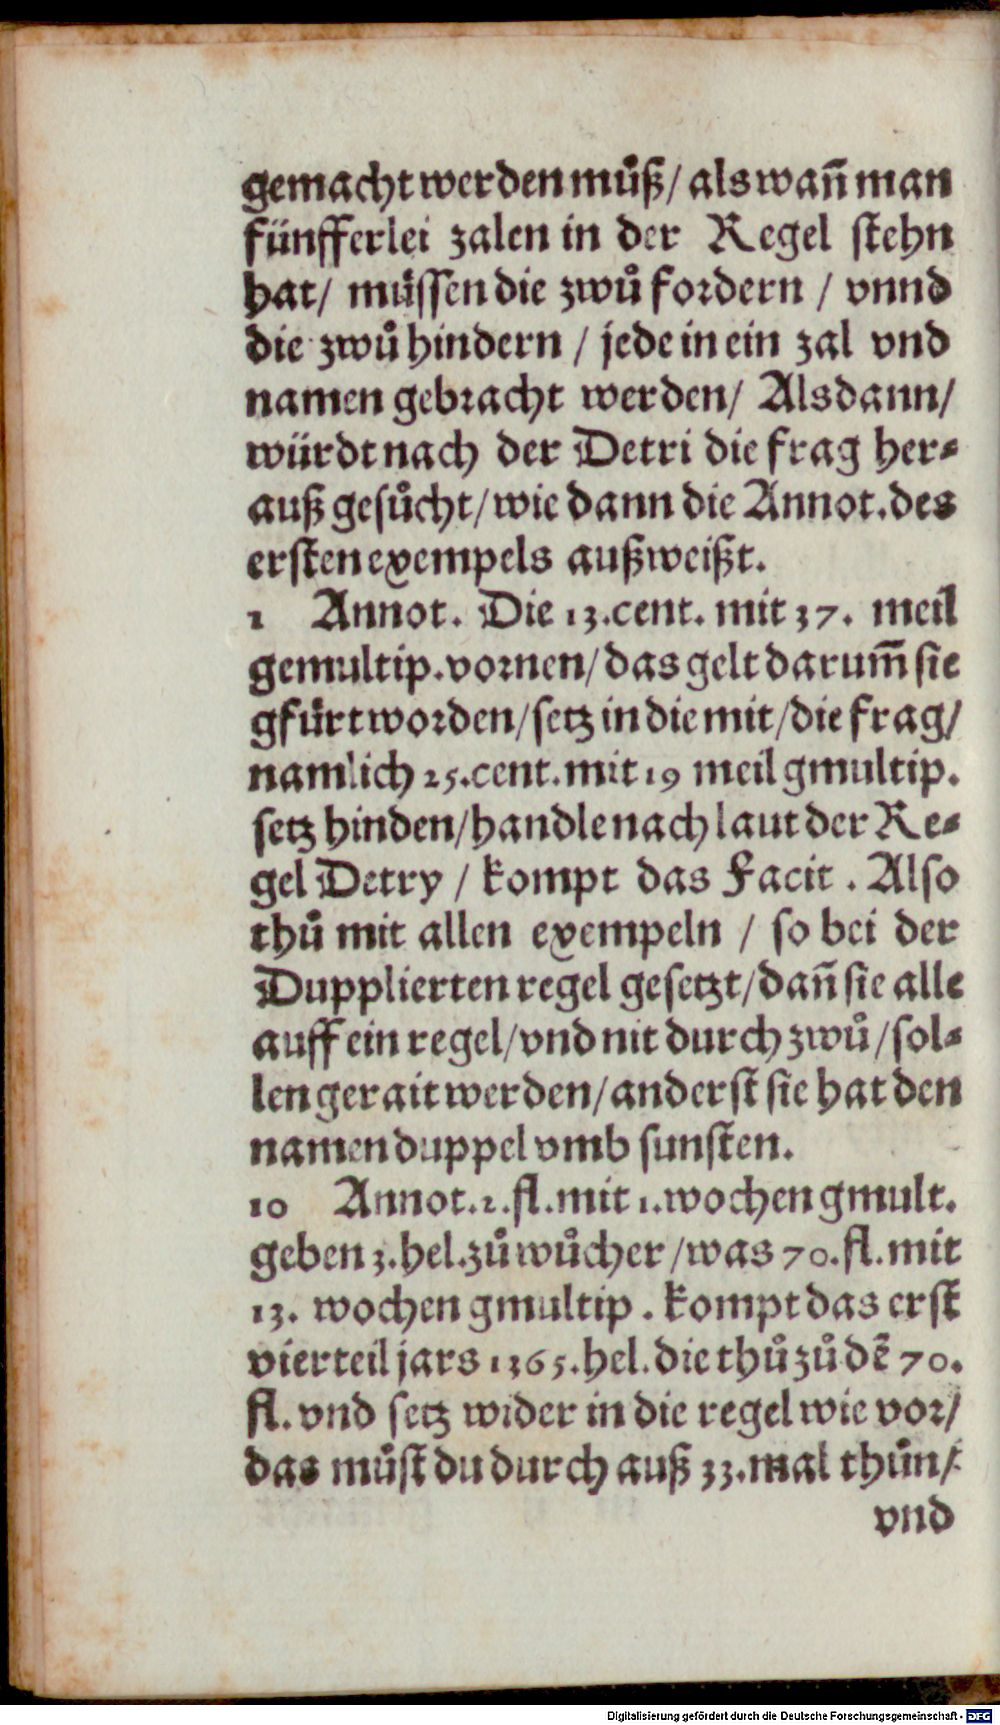 gemacht werden muͦß/ als wañ man
fünfferlei zalen in der Regel stehn
hat/ muͤssen die zwuͦ fordern / vnnd
die zwuͦ hindern / jede in ein zal vnd
namen gebracht werden/ Alsdann/
würdt nach der Detri die frag her⸗
auß gesuͦcht/ wie dann die Annot. des
ersten exempels außweißt.
1 Annot. Die 13. cent. mit 37. meil
gemultip. vornen/ das gelt darum̃ sie
gfuͤrt worden/ setz in die mit/ die frag/
namlich 25. cent. mit 19 meil gmultip.
setz hinden/ handle nach laut der Re⸗
gel Detry / kompt das Facit . Also
thuͦ mit allen exempeln / so bei der
Dupplierten regel gesetzt/ dañ sie alle
auff ein regel/ vnd nit durch zwuͦ/ sol⸗
len gerait werden/ anderst sie hat den
namen duppel vmb sunsten.
10 Annot. 1. fl. mit 1. wochen gmult.
geben 3. hel. zuͦ wuͦcher / was 70. fl. mit
13. wochen gmultip . kompt das erst
vierteil jars 1365. hel. die thuͦ zuͦ dē 70.
fl. vnd setz wider in die regel wie vor/
das muͦst du durch auß 33. mal thuͦn/
vnd
Digitalisierung gefördert durch die Deutsche Forschungsgemeinschaft - DFG